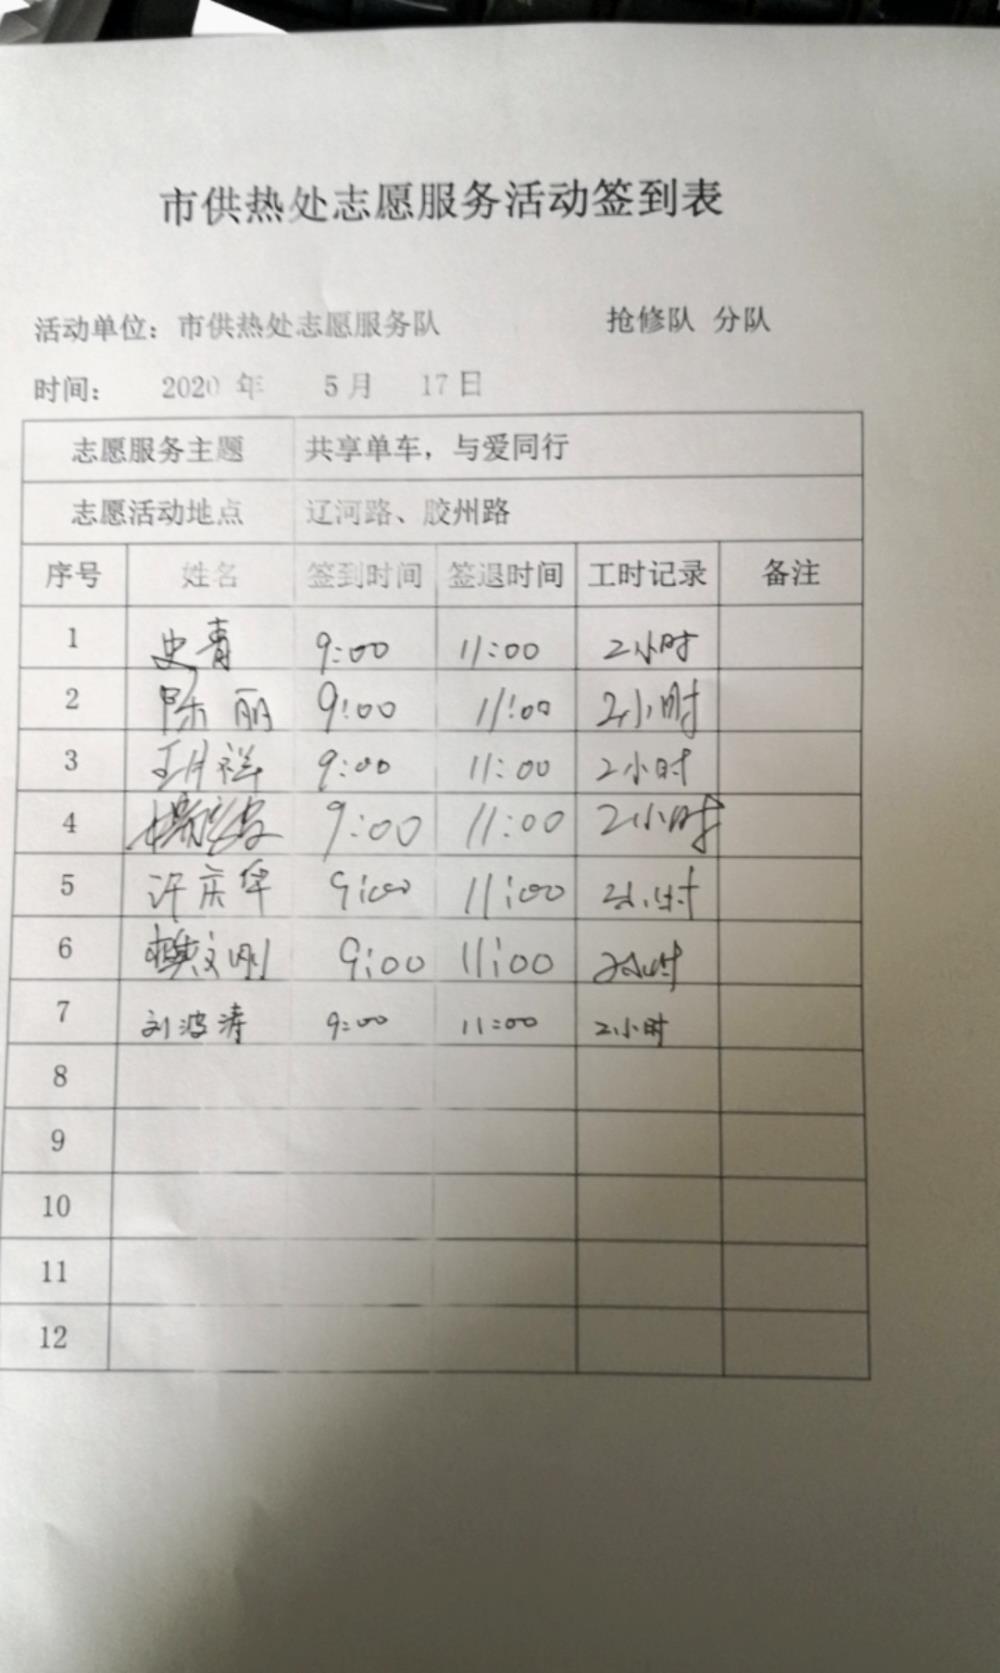 市供热处志愿服务活动签到表
活动单位：市供热处志愿服务队 抢修队 分队
时间： 2020 年 5月 17日
志愿服务主题 共享单车，与爱同行
志愿活动地点 辽河路、胶州路
序号 姓名 签到时间 签退时间 工时记录 备注
1 史青 9:00 11:00 2小时
2 陈丽 9:00 11:00 2小时
3 9:00 11:00 2小时
4 9:00 11:00 2小时
5 许庆华 9:00 11:00 2小时
6 樊文刚 9:00 11:00 2小时
7 刘波涛 9:00 11:00 2小时
8
9
10
11
12